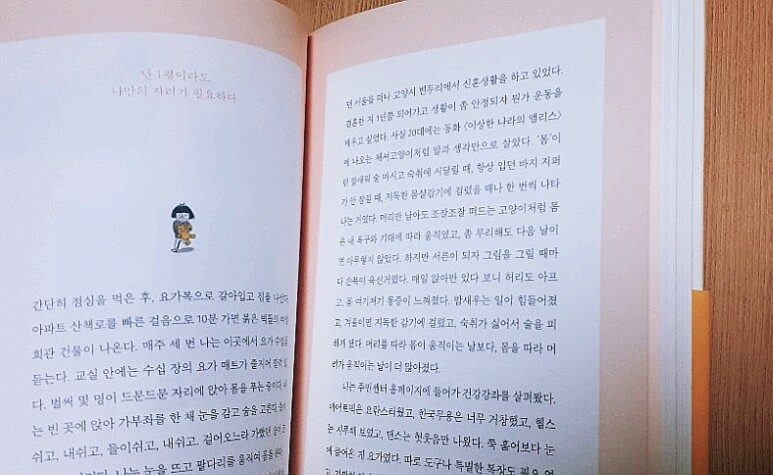 단 1평이라도
나만의 자리가 필요하다
간단히 점심을 먹은 후, 요가복으로 갈아입고 집을 나선다.
아파트 산책로를 빠른 걸음으로 10분 가면 붉은 벽돌의 여성
회관 건물이 나온다. 매주 세 번 나는 이곳에서 요가 수업을
듣는다. 교실 안에는 수십 장의 요가 매트가 줄지어 깔려 있
다. 벌써 몇 명이 드문드문 자리에 앉아 몸을 푸는 중이다. 나
는 빈 곳에 앉아 가부좌를 한 채 눈을 감고 숨을 고른다. 들이
쉬고, 내쉬고, 들이쉬고, 내쉬고. 길어오느라 가빴던 숨이
나는 눈을 뜨고 팔다리를 움직여
던 서울을 떠나 고양시 변두리에서 신혼생활을 하고 있었다.
결혼한 지 1년쯤 되어가고 생활이 좀 안정되자 뭔가 운동을
배우고 싶었다. 사실 20대에는 동화 〈이상한 나라의 앨리스〉
에 나오는 체셔고양이처럼 말과 생각만으로 살았다. '몸'이
란 밤새워 술 마시고 숙취에 시달릴 때, 항상 입던 바지 지퍼
가 안 잠길 때, 지독한 몸살감기에 걸렸을 때나 한 번씩 나타
나는 거였다. 머리만 남아도 조잘조잘 떠드는 고양이처럼 몸
은 내 욕구와 기대에 따라 움직였고, 좀 무리해도 다음 날이
면 아무렇지 않았다. 하지만 서른이 되자 그림을 그릴 때마
다 손목이 욱신거렸다. 매일 앉아만 있다 보니 허리도 아프
고, 몸 여기저기 통증이 느껴졌다. 밤새우는 일이 힘들어졌
고, 겨울이면 지독한 감기에 걸렸고, 숙취가 싫어서 술을 피
하게 됐다. 머리를 따라 몸이 움직이는 날보다, 몸을 따라 머
리가 움직이는 날이 더 많아졌다.
나는 주민센터 홈페이지에 들어가 건강강좌를 살펴봤다.
에어로빅은 요란스러웠고, 한국무용은 너무 거창했고, 헬스
는 지루해 보였고, 댄스는 헛웃음만 나왔다. 쭉 훑어보다 눈
에 들어온 게 요가였다. 따로 도구나 특별한 복장도 필요